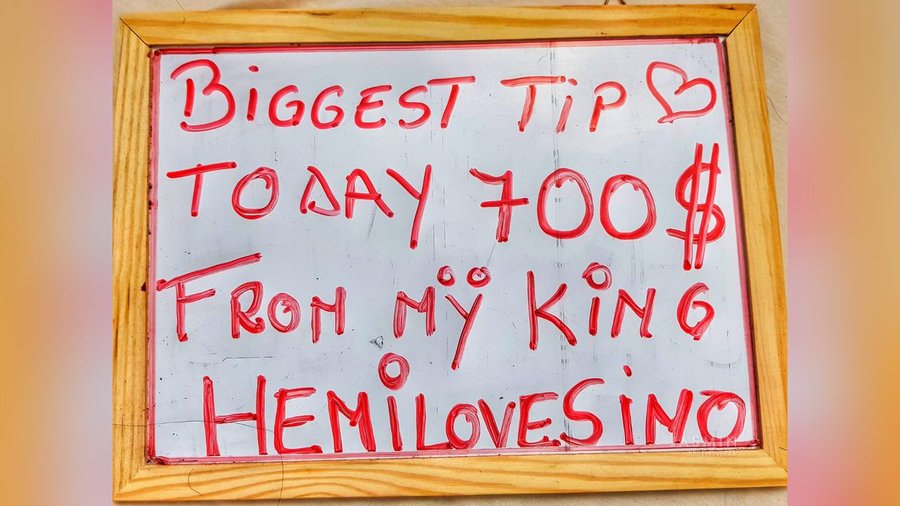 BiGGEST TiP ♡
TODAY 700$
FROM MÿKiNG
HEMiLOVESiNO